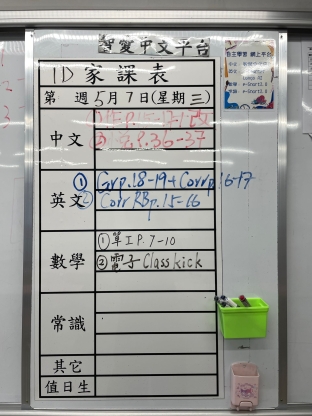 智愛中文平台
1D 家課表
第 週 5月7日(星期三)
中文
P.36-37
英文
① Grp.18-19+Corrp.16-17
② Corr RBp.15-16
數學
① 單I P.7-10
② 電子Classkick
常識
其它
值日生
自主學習網上平台